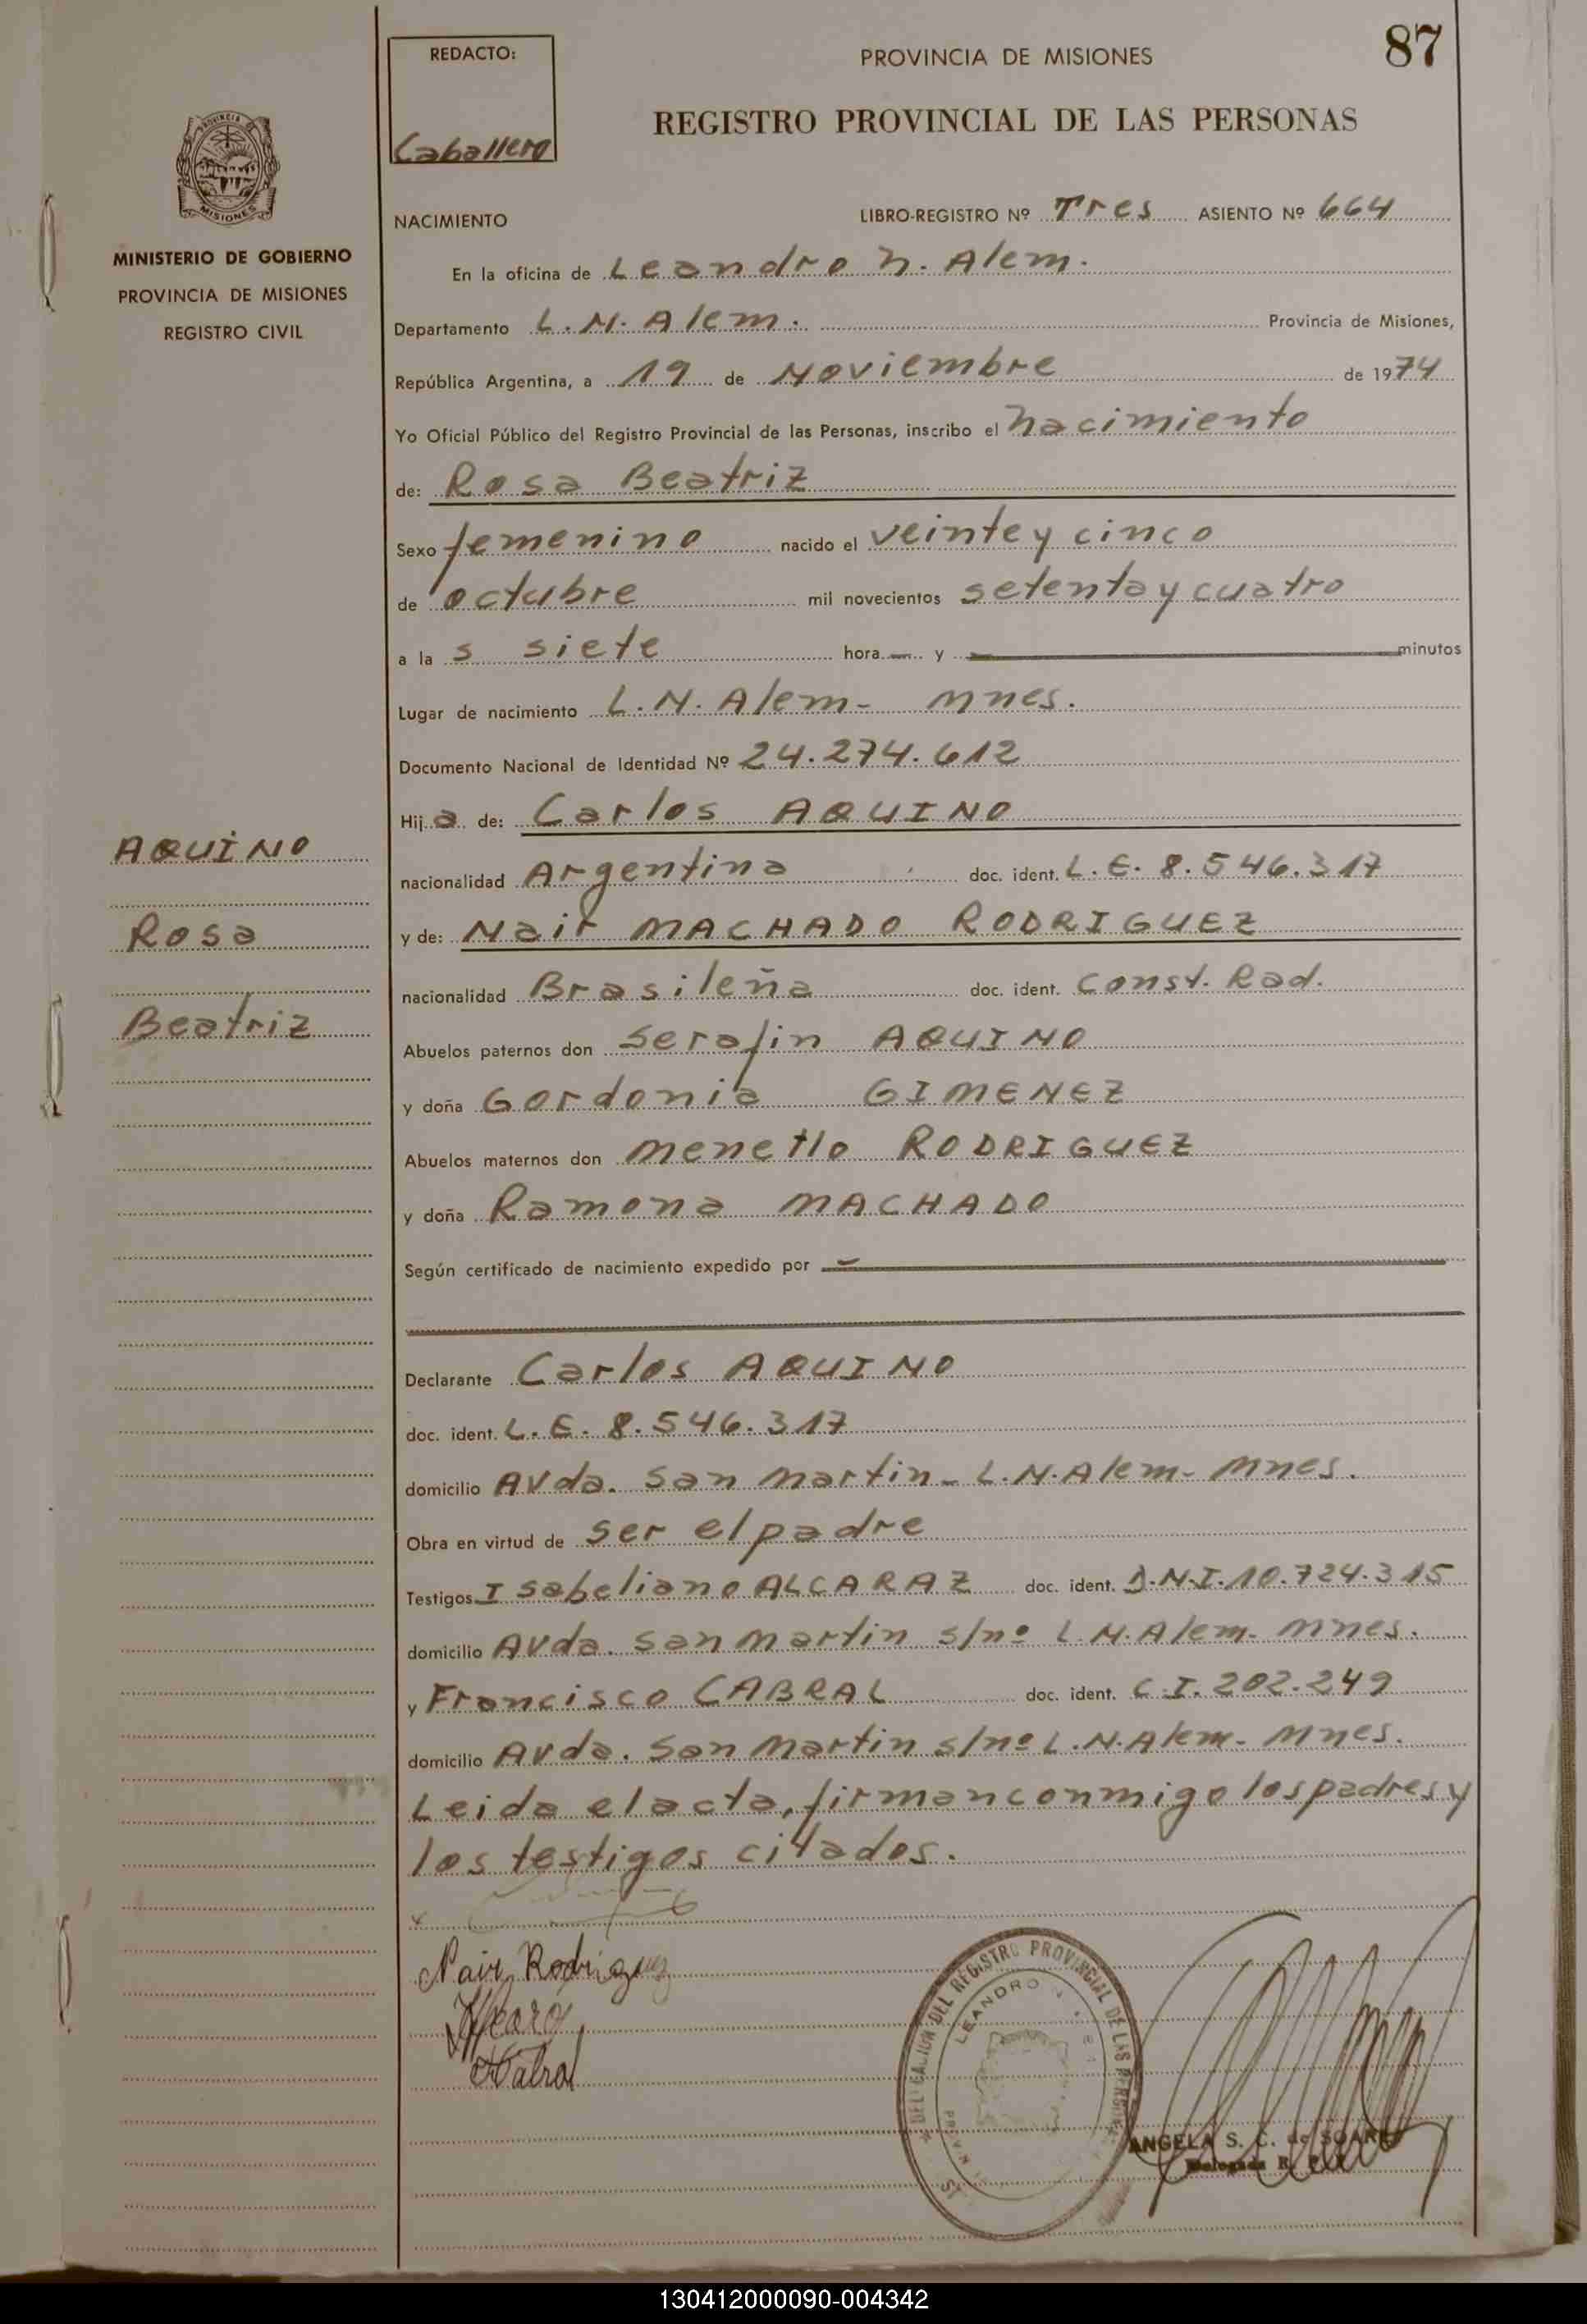 87
REDACTO:
Caballero
PROVINCIA DE MISIONES
REGISTRO PROVINCIAL DE LAS PERSONAS
MISIONES
MINISTERIO DE GOBIERNO
PROVINCIA DE MISIONES
REGISTRO CIVIL
NACIMIENTO LIBRO-REGISTRO Nº Tres ASIENTO Nº 664
En la oficina de Leandro N. Alem.
Departamento L.N. Alem. Provincia de Misiones,
República Argentina, a 19 de Noviembre de 1974
Yo Oficial Público del Registro Provincial de las Personas, inscribo el nacimiento
de: Rosa Beatriz
Sexo femenino nacido el veinte y cinco
de octubre mil novecientos setenta y cuatro
a la s siete hora — y — minutos
Lugar de nacimiento L.N. Alem - Mnes.
Documento Nacional de Identidad Nº 24.274.612
Hija de: Carlos AQUINO
nacionalidad Argentina doc. ident. L.E. 8.546.317
y de: Nair MACHADO RODRIGUEZ
nacionalidad Brasileña doc. ident. Const. Rad.
Abuelos paternos don Serafin AQUINO
y doña Gordonia GIMENEZ
Abuelos maternos don Menetio RODRIGUEZ
y doña Ramona MACHADO
Según certificado de nacimiento expedido por —
Declarante Carlos AQUINO
doc. ident. L.E. 8.546.317
domicilio Avda. San Martin - L.N. Alem - Mnes.
Obra en virtud de ser el padre
Testigos Isabeliano ALCARAZ doc. ident. D.N.I. 10.724.315
domicilio Avda. San Martin s/nº L.N. Alem - Mnes.
y Francisco CABRAL doc. ident. C.I. 202.249
domicilio Avda. San Martin s/nº L.N. Alem - Mnes.
Leida el acta, firman conmigo los padres y
los testigos citados.
AQUINO
Rosa
Beatriz
x
Nair Rodriguez
DELEGACION DEL REGISTRO PROVINCIAL DE LAS PERSONAS
LEANDRO N.
ANGELA S. C. de SOARE
Delegada R.
130412000090-004342